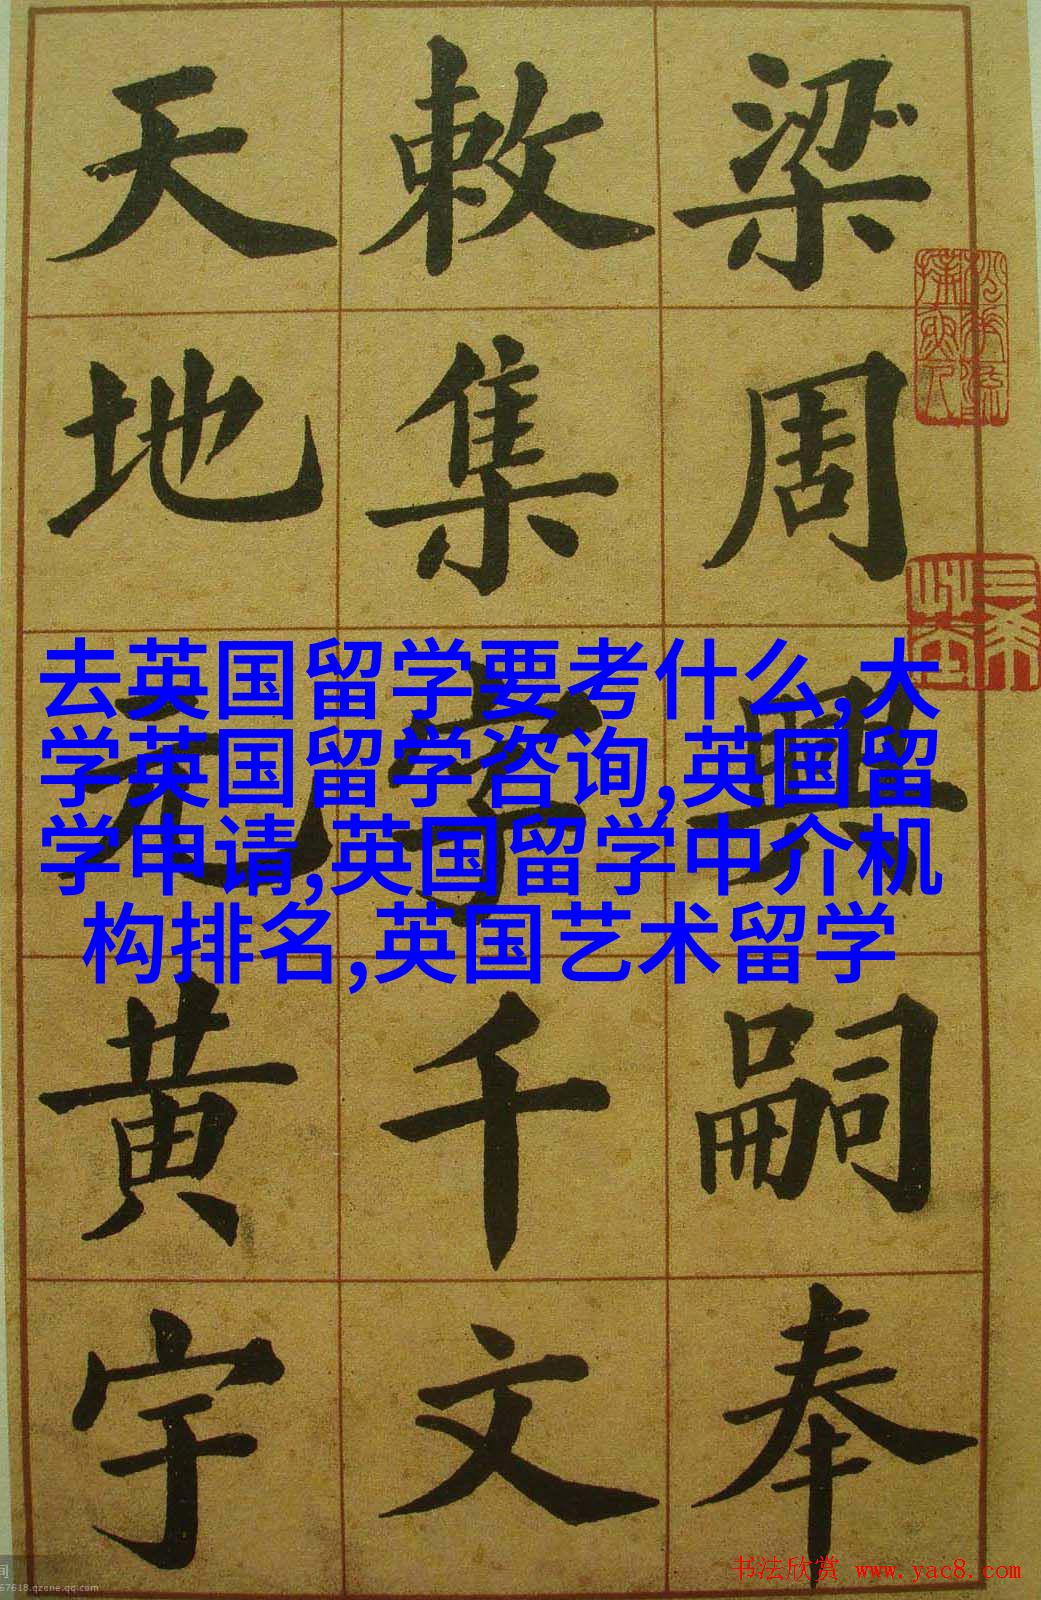 梁周興嗣奉
敕集字千文
天地元黄宇
去英国留学要考什么,大
学英国留学咨询,英国留
学申请,英国留学中介机
构排名,英国艺术留学
书法欣赏 www.yac8.com
67618.qzone.qq.com